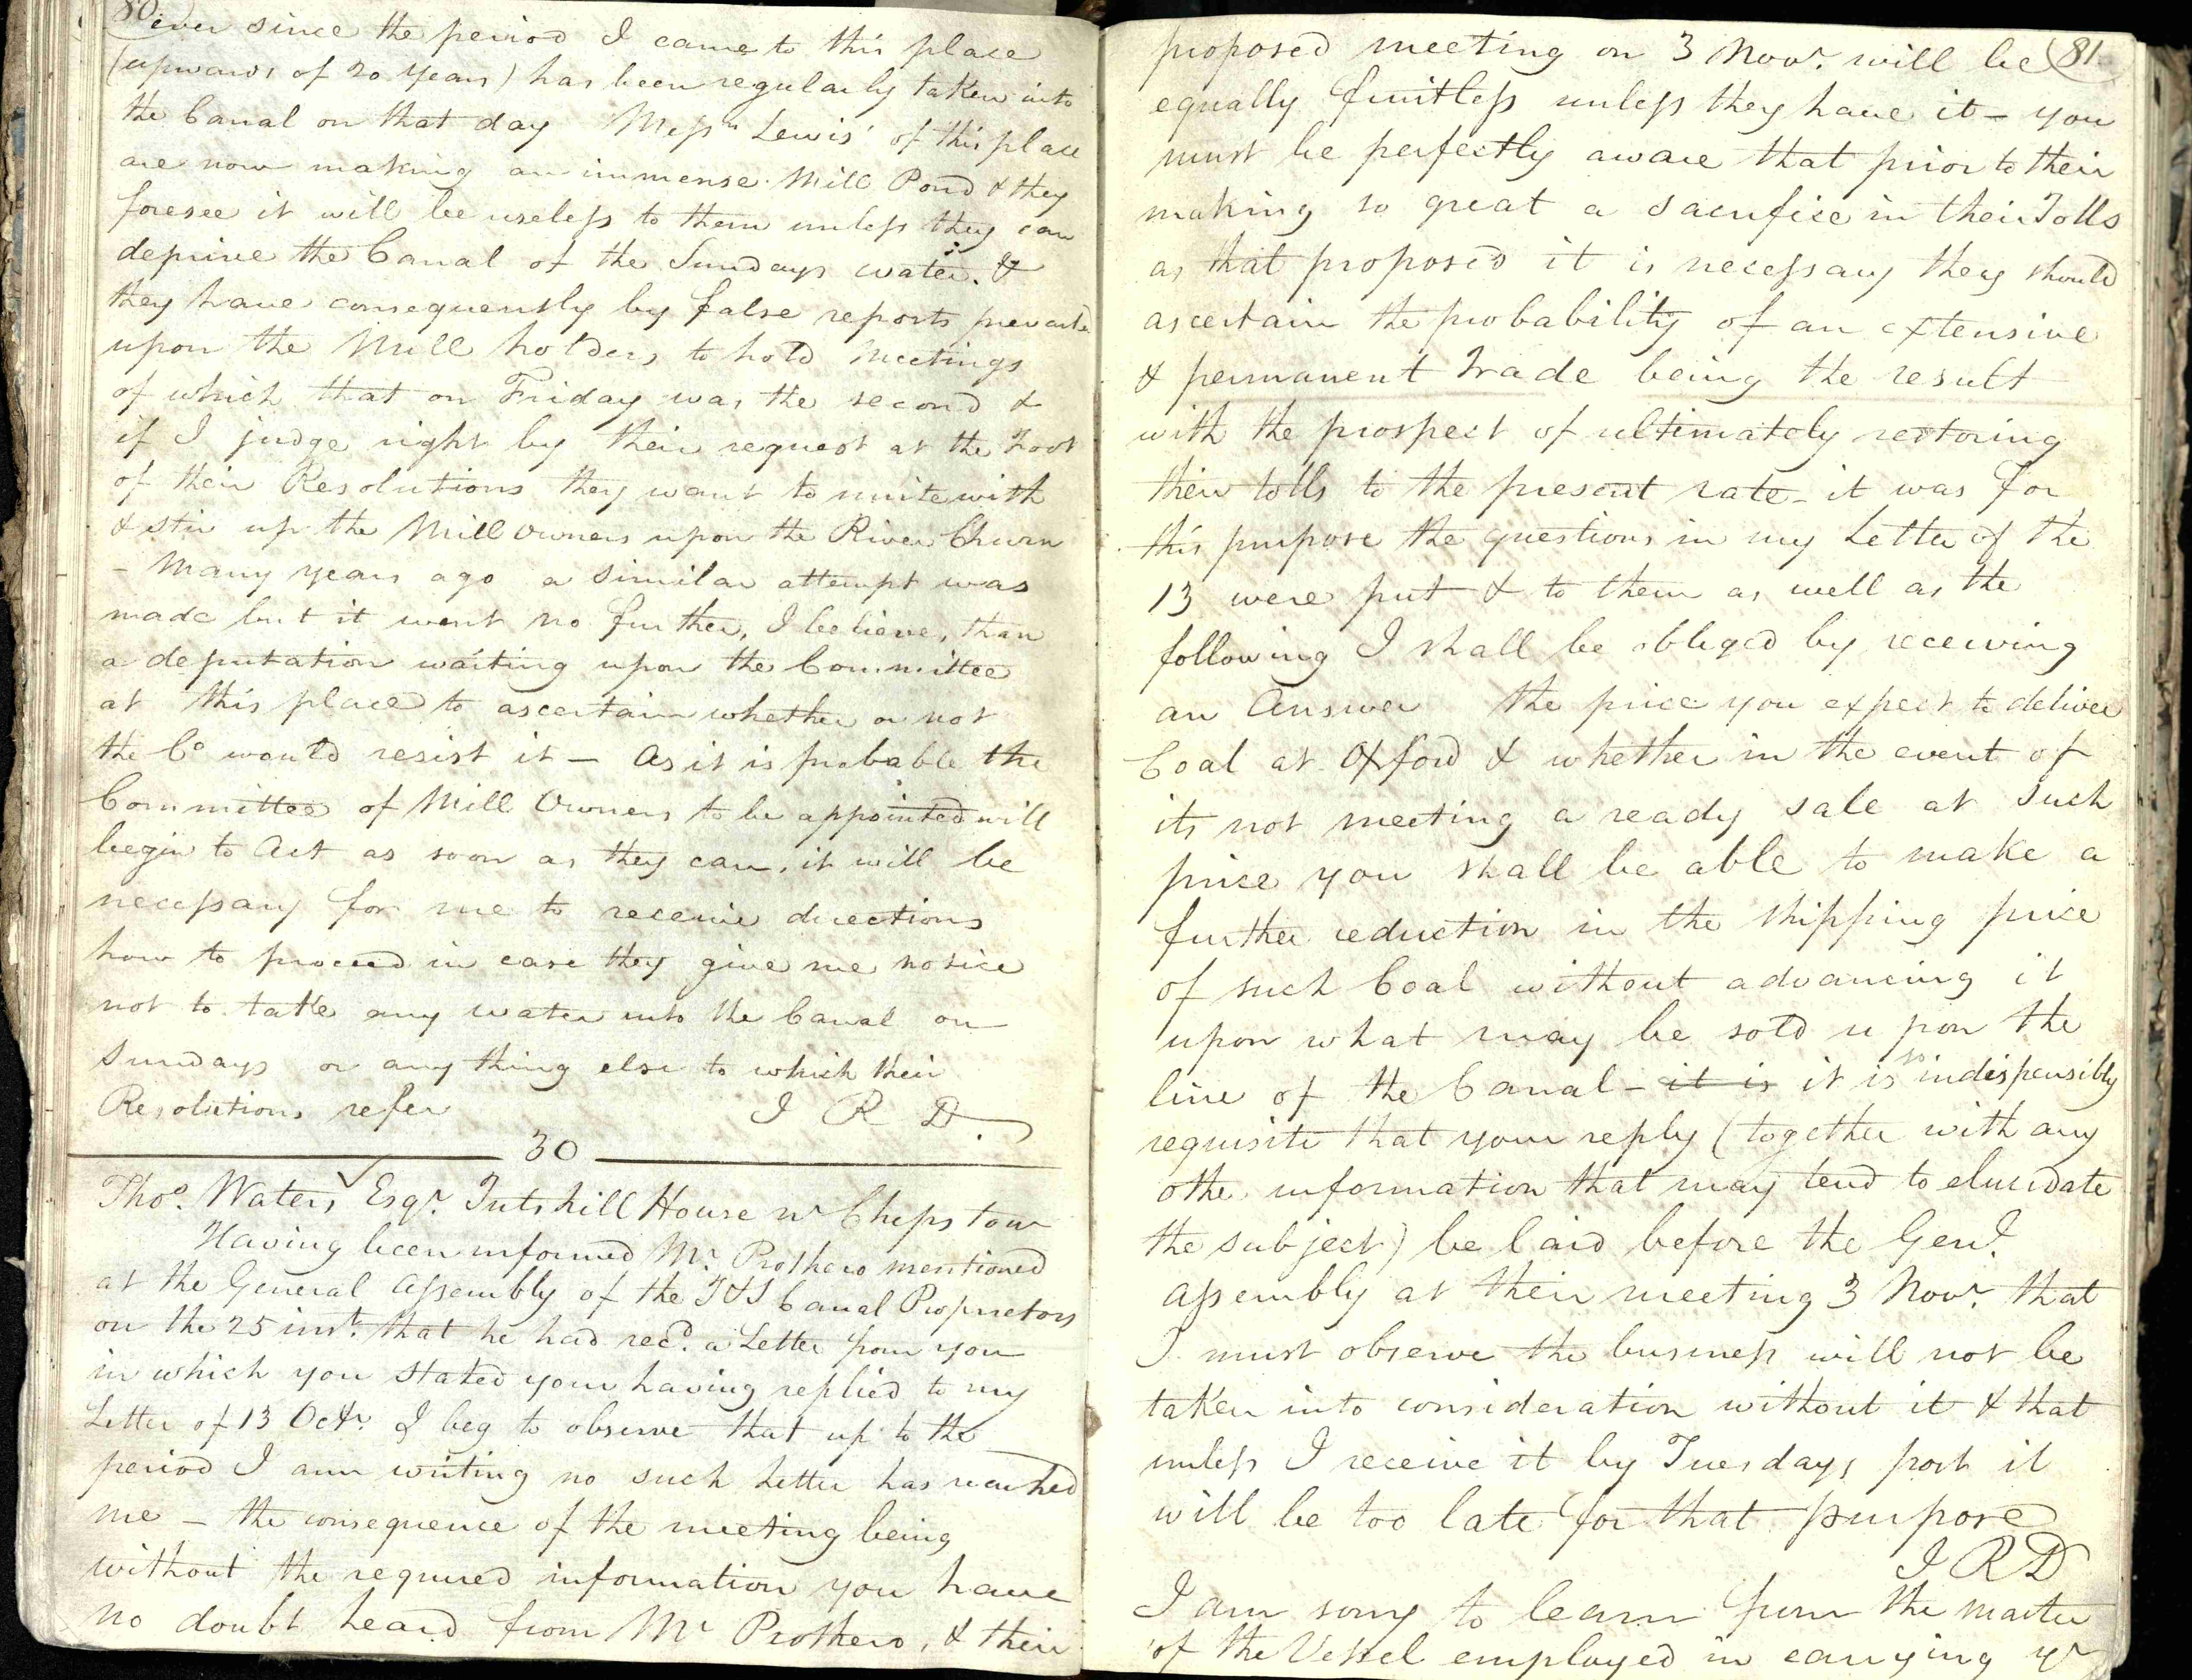 80
ever since the period I came to this place
(upwards of 20 Years) has been regularly taken into
the Canal on that day Messrs Lewis' of this place
are now making an immense Mill Pond & they
foresee it will be useless to them unless they can
deprive the Canal of the Sundays water. &
they have consequently by false reports prevailed
upon the Mill holders to hold Meetings
of which that on Friday was the second &
if I judge right by their request at the Foot
of their Resolutions they want to unite with
& stir up the Mill Owners upon the River Churn
– Many years ago a similar attempt was
made but it went no further, I believe, than
a deputation waiting upon the Committee
at this place to ascertain whether or not
the Co would resist it – As it is probable the
Committee of Mill Owners to be appointed will
begin to Act as soon as they can, it will be
necessary for me to receive directions
how to proceed in case they give me notice
not to take any water into the Canal on
Sundays or any thing else to which their
Resolutions refer I R D.
30
Thos. Waters Esqr. Tutshill House nr Chepstow
Having been informed Mr. Prothero mentioned
at the General Assembly of the T&S Canal Proprietors
on the 25 inst. that he had recd. a Letter from you
in which you stated your having replied to my
Letter of 13 Octr. I beg to observe that up to the
period I am writing no such Letter has reached
me – the consequence of the meeting being
without the required information you have
no doubt heard from Mr Prothero, & their
81
proposed meeting on 3 Novr. will be
equally fruitless unless they have it – you
must be perfectly aware that prior to their
making so great a sacrifice in their Tolls
as that proposed it is necessary they should
ascertain the probability of an extensive
& permanent trade being the result
with the prospect of ultimately restoring
their tolls to the present rate – it was for
this purpose the questions in my Letter of the
13 were put & to them as well as the
following I shall be obliged by receiving
an Answer the price you expect to deliver
Coal at Oxford & whether in the event of
its not meeting a ready sale at such
price you shall be able to make a
further reduction in the shipping price
of such Coal without advancing it
upon what may be sold upon the
line of the Canal – it is it is so indispensibly
requisite that your reply (together with any
other information that may tend to elucidate
the subject) be laid before the Genl.
Assembly at their meeting 3 Novr. that
I must observe the business will not be
taken into consideration without it & that
unless I receive it by Tuesdays post it
will be too late for that purpose
I R D
I am sorry to learn from the master
of the Vessel employed in carrying yr